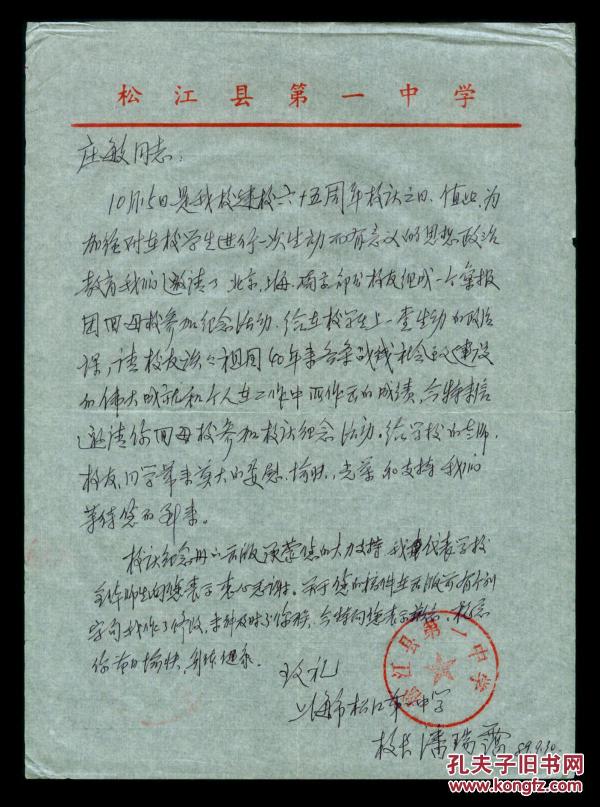 松江县第一中学
庄敏同志：
10月15日是我校建校六十五周年校庆之日、值此、为
加强对在校学生进行一次生动而有意义的思想政治
教育我们邀请了北京、上海、南京部分校友组成一个汇报
团回母校参加纪念活动、给在校学生上一堂生动的政治
课，请校友谈谈祖国40年来各条战线社会主义建设
的伟大成就和个人在工作中所作出的成绩，今特来信
邀请你回母校参加校庆纪念活动。给学校的老师、
校友、同学带来莫大的安慰、愉快、光荣和支持、我们
等待您的到来。
校庆纪念册的出版须蒙您的大力支持、我代表学校
全体师生向您表示衷心感谢。
字句我作了修改，未种及时
你节日愉快，身体健康。
致礼
上海市松江第一中学
校长 潘瑞
89.9.10
松江县第一中学
孔夫子旧书网
www.kongfz.com